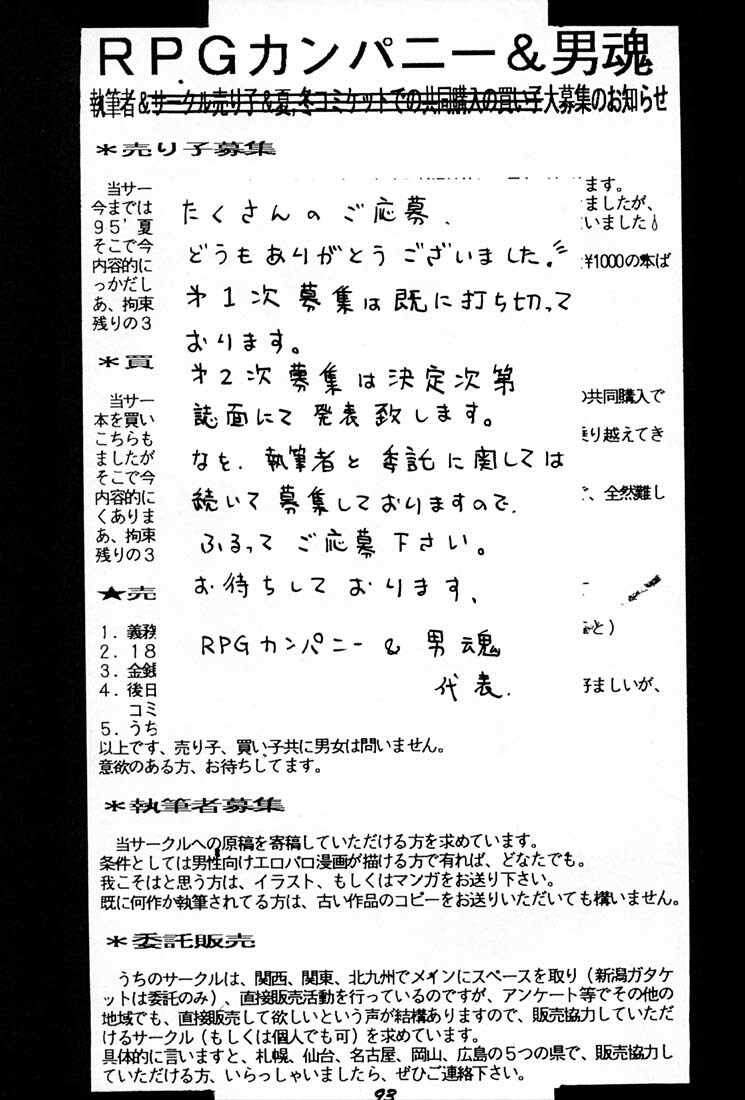 RPGカンパニー&男魂
執筆者&サークル売り子&夏,冬コミケットでの共同購入の買い子大募集のお知らせ
*売り子募集
当サー
今までは
95'夏
そこで今
内容的に
っかだし
あ、拘束
残りの3
ます。
ましたが、
いました
¥1000の本ば
たくさんのご応募、
どうもありがとうございました!
第1次募集は既に打ち切って
おります。
第2次募集は決定次第
誌面にて発表致します。
なを、執筆者と委託に関しては
続いて募集しておりますので、
ふるってご応募下さい。
お待ちしております、
RPGカンパニー&男魂
代表.
*買
当サー
本を買い
こちらも
ましたが
そこで今
内容的に
くありま
あ、拘束
残りの3
の共同購入で
乗り越えてき
、全然難し
★売
1.義務
2.18
3.金銭
4.後日
コミ
5.うち
と)
好ましいが、
以上です、売り子、買い子共に男女は問いません。
意欲のある方、お待ちしてます。
*執筆者募集
当サークルへの原稿を寄稿していただける方を求めています。
条件としては男性向けエロパロ漫画が描ける方で有れば、どなたでも。
我こそはと思う方は、イラスト、もしくはマンガをお送り下さい。
既に何作か執筆されてる方は、古い作品のコピーをお送りいただいても構いません。
*委託販売
うちのサークルは、関西、関東、北九州でメインにスペースを取り(新潟ガタケ
ットは委託のみ)、直接販売活動を行っているのですが、アンケート等でその他の
地域でも、直接販売して欲しいという声が結構ありますので、販売協力していただ
けるサークル(もしくは個人でも可)を求めています。
具体的に言いますと、札幌、仙台、名古屋、岡山、広島の5つの県で、販売協力し
ていただける方、いらっしゃいましたら、ぜひご連絡下さい。
93